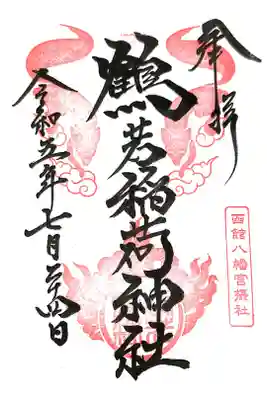 奉拝
鶴若稲荷神社
令和五年七月二十四日
函館八幡宮摂社